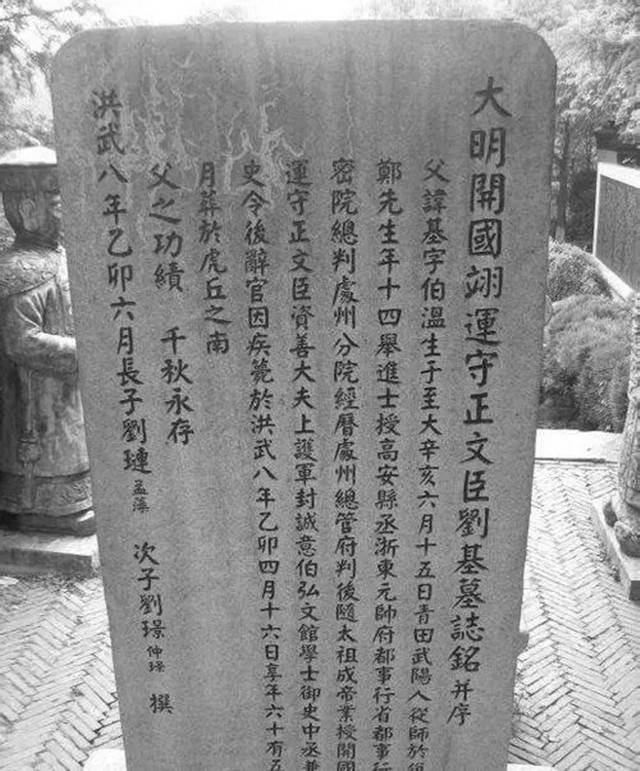 大明開國翊運守正文臣劉基墓誌銘并序
父諱基字伯溫生于至大辛亥六月十五日青田武陽人從師於復
鄭先生年十四舉進士授高安縣丞浙東元帥府都事行省都事行
密院總判處州分院經曆處州總管府判後隨太祖成帝業授開國
運守正文臣資善大夫上護軍封誠意伯弘文館學士御史中丞兼
史令後辭官因疾薨於洪武八年乙卯四月十六日享年六十有五
月葬於虎丘之南
父之功績 千秋永存
洪武八年乙卯六月長子劉璉孟藻 次子劉璟仲璟 撰